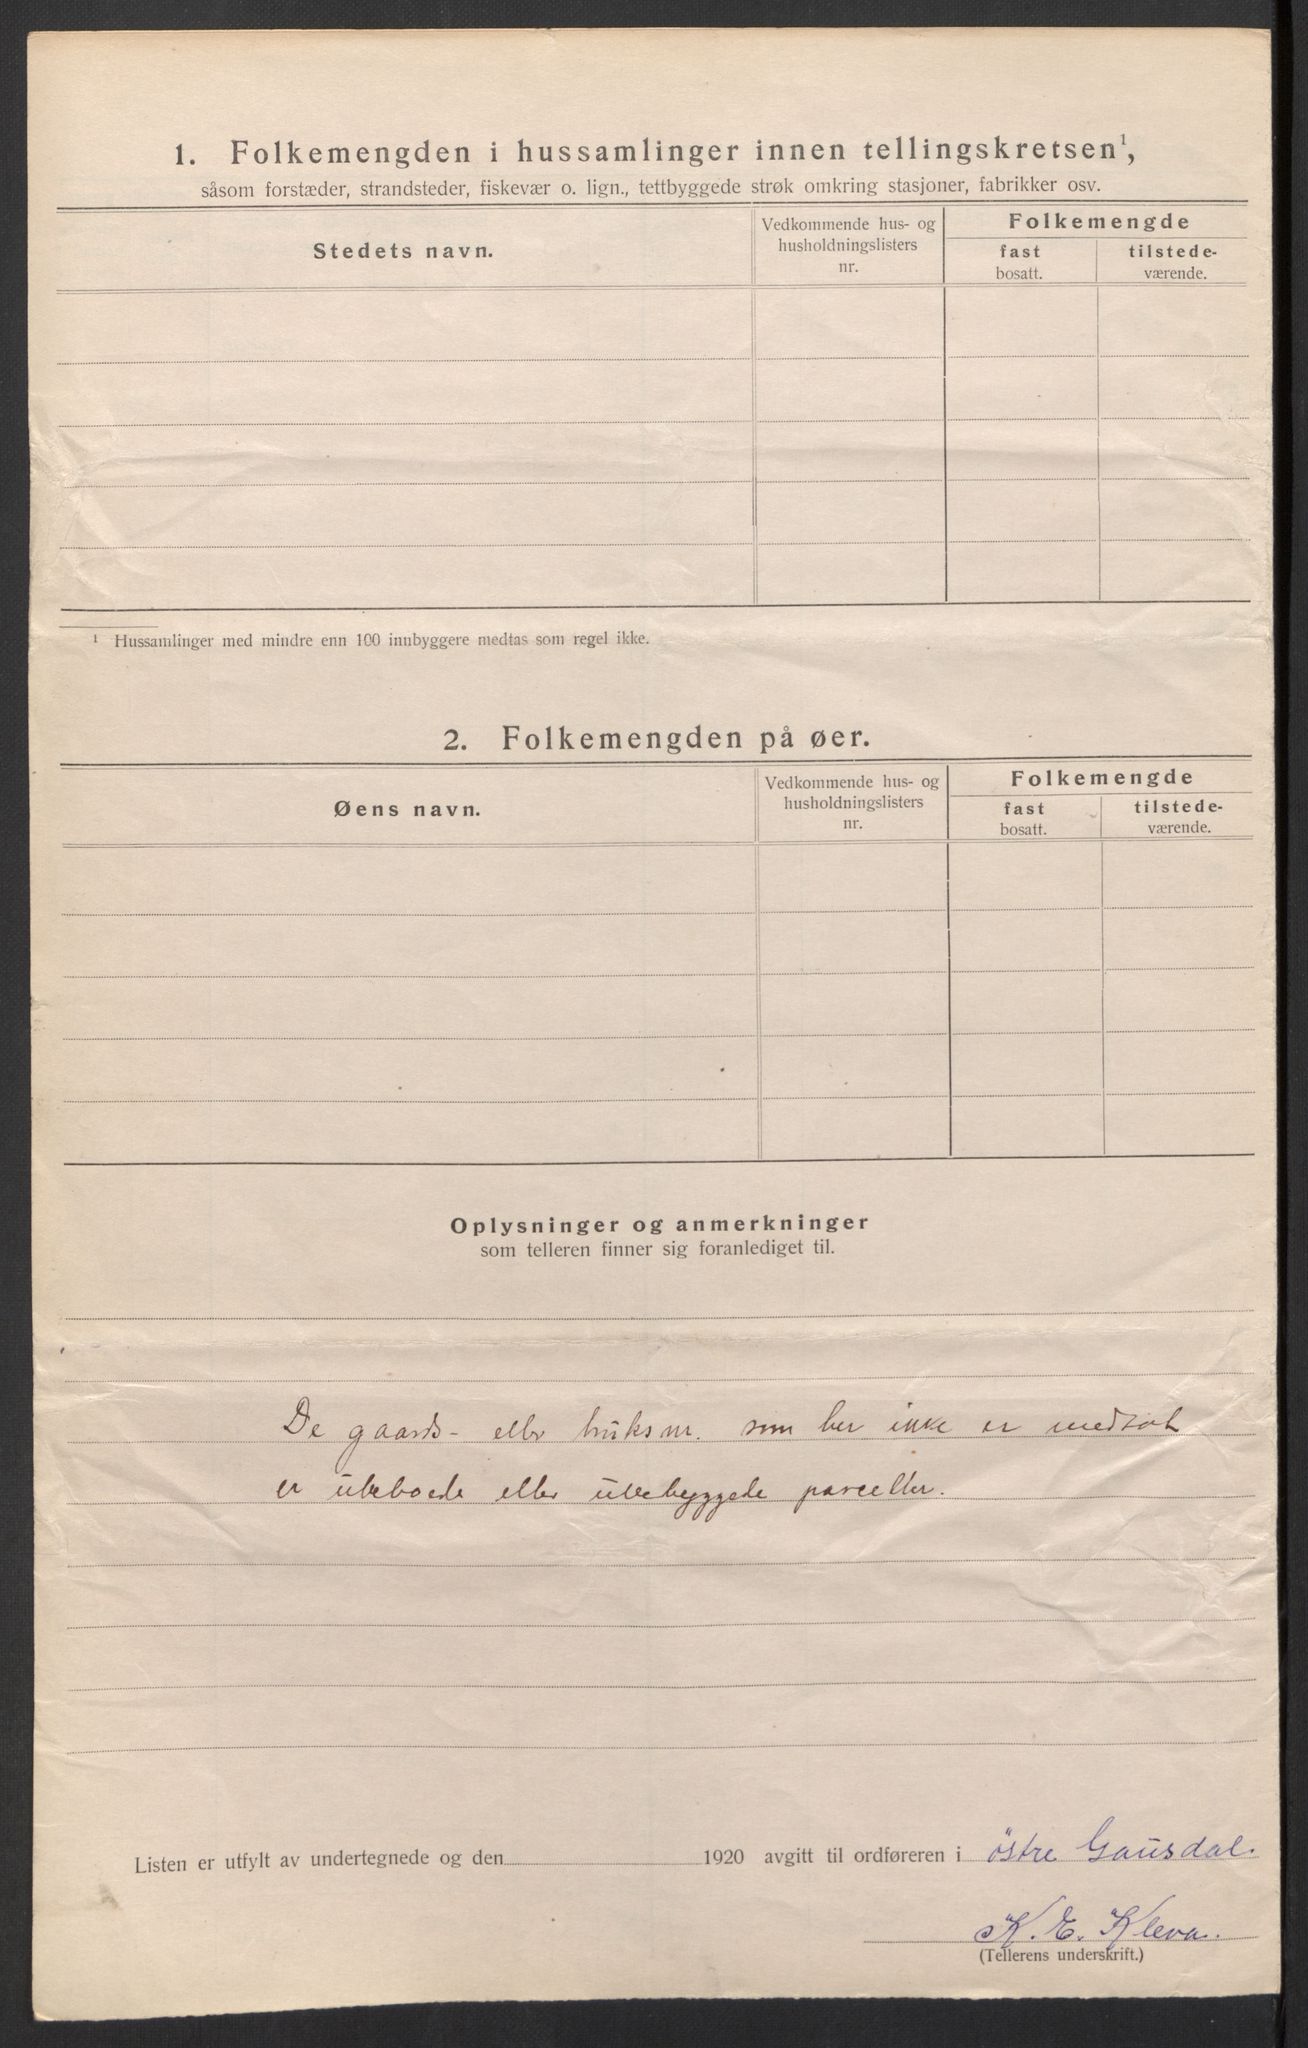 1. Folkemengden i hussamlinger innen tellingskretsen¹,
såsom forstæder, strandsteder, fiskevær o. lign., tettbyggede strøk omkring stasjoner, fabrikker osv.
Stedets navn.
Vedkommende hus- og
husholdningslisters
nr.
Folkemengde
fast
bosatt.
tilstede-
værende.
¹ Hussamlinger med mindre enn 100 innbyggere medtas som regel ikke.
2. Folkemengden på øer.
Øens navn.
Vedkommende hus- og
husholdningslisters
nr.
Folkemengde
fast
bosatt.
tilstede-
værende.
Oplysninger og anmerkninger
som telleren finner sig foranlediget til.
De gaards- eller bruksnr. som her ikke er medtat
er ubeboede eller ubebyggede parceller.
Listen er utfylt av undertegnede og den 1920 avgitt til ordføreren i Östre Gausdal.
K. E. Kleva.
(Tellerens underskrift.)